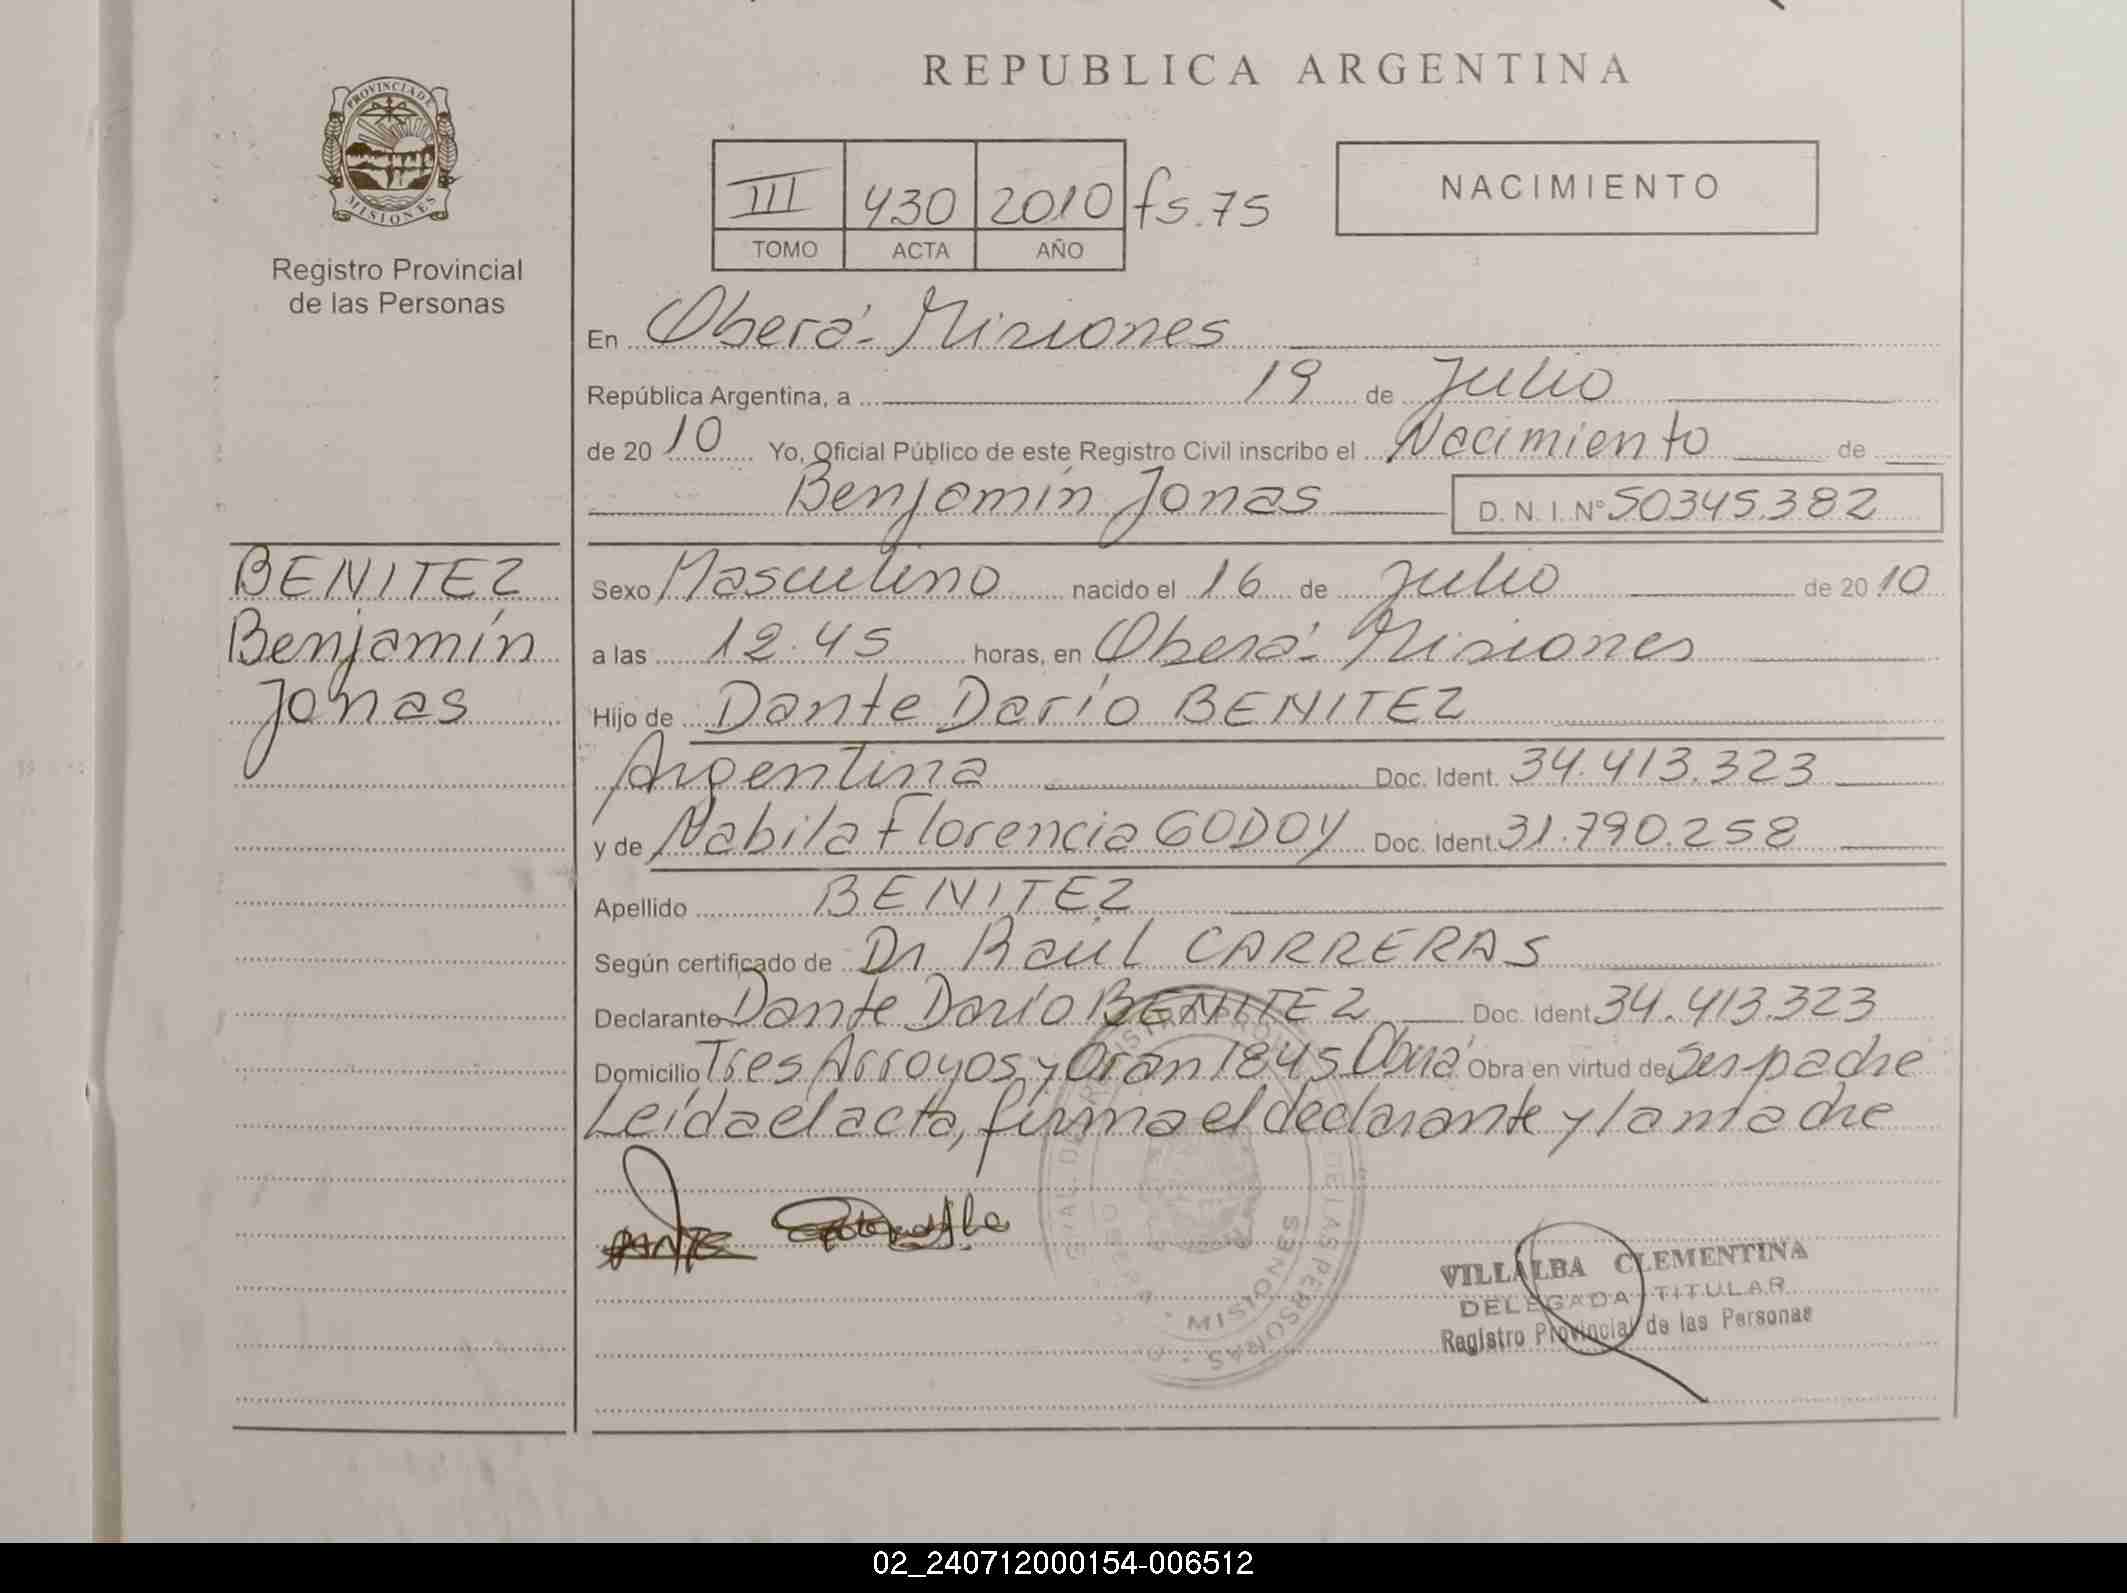 REPUBLICA ARGENTINA
PROVINCIA DE
MISIONES
Registro Provincial
de las Personas
III 430 2010 fs. 75
TOMO ACTA AÑO
NACIMIENTO
En Oberá - Misiones
República Argentina, a 19 de Julio
de 20 10 Yo, Oficial Público de este Registro Civil inscribo el Nacimiento de
Benjamín Jonas D. N. I. Nº 50345.382
BENITEZ
Benjamín
Jonas
Sexo Masculino nacido el 16 de Julio de 20 10
a las 12.45 horas, en Oberá - Misiones
Hijo de Dante Darío BENITEZ
Argentina Doc. Ident. 34.413.323
y de Nabila Florencia GODOY Doc. Ident. 31.790.258
Apellido BENITEZ
Según certificado de Dr Raúl CARRERAS
Declarante Dante Darío BENITEZ Doc. Ident. 34.413.323
Domicilio Tres Arroyos y Oran 1845 Oberá Obra en virtud de ser padre
Leída el acta, firma el declarante y la madre
DANTE
MISIONES
DE LAS PERSONAS
VILLALBA CLEMENTINA
DELEGADA TITULAR
Registro Provincial de las Personas
02_240712000154-006512